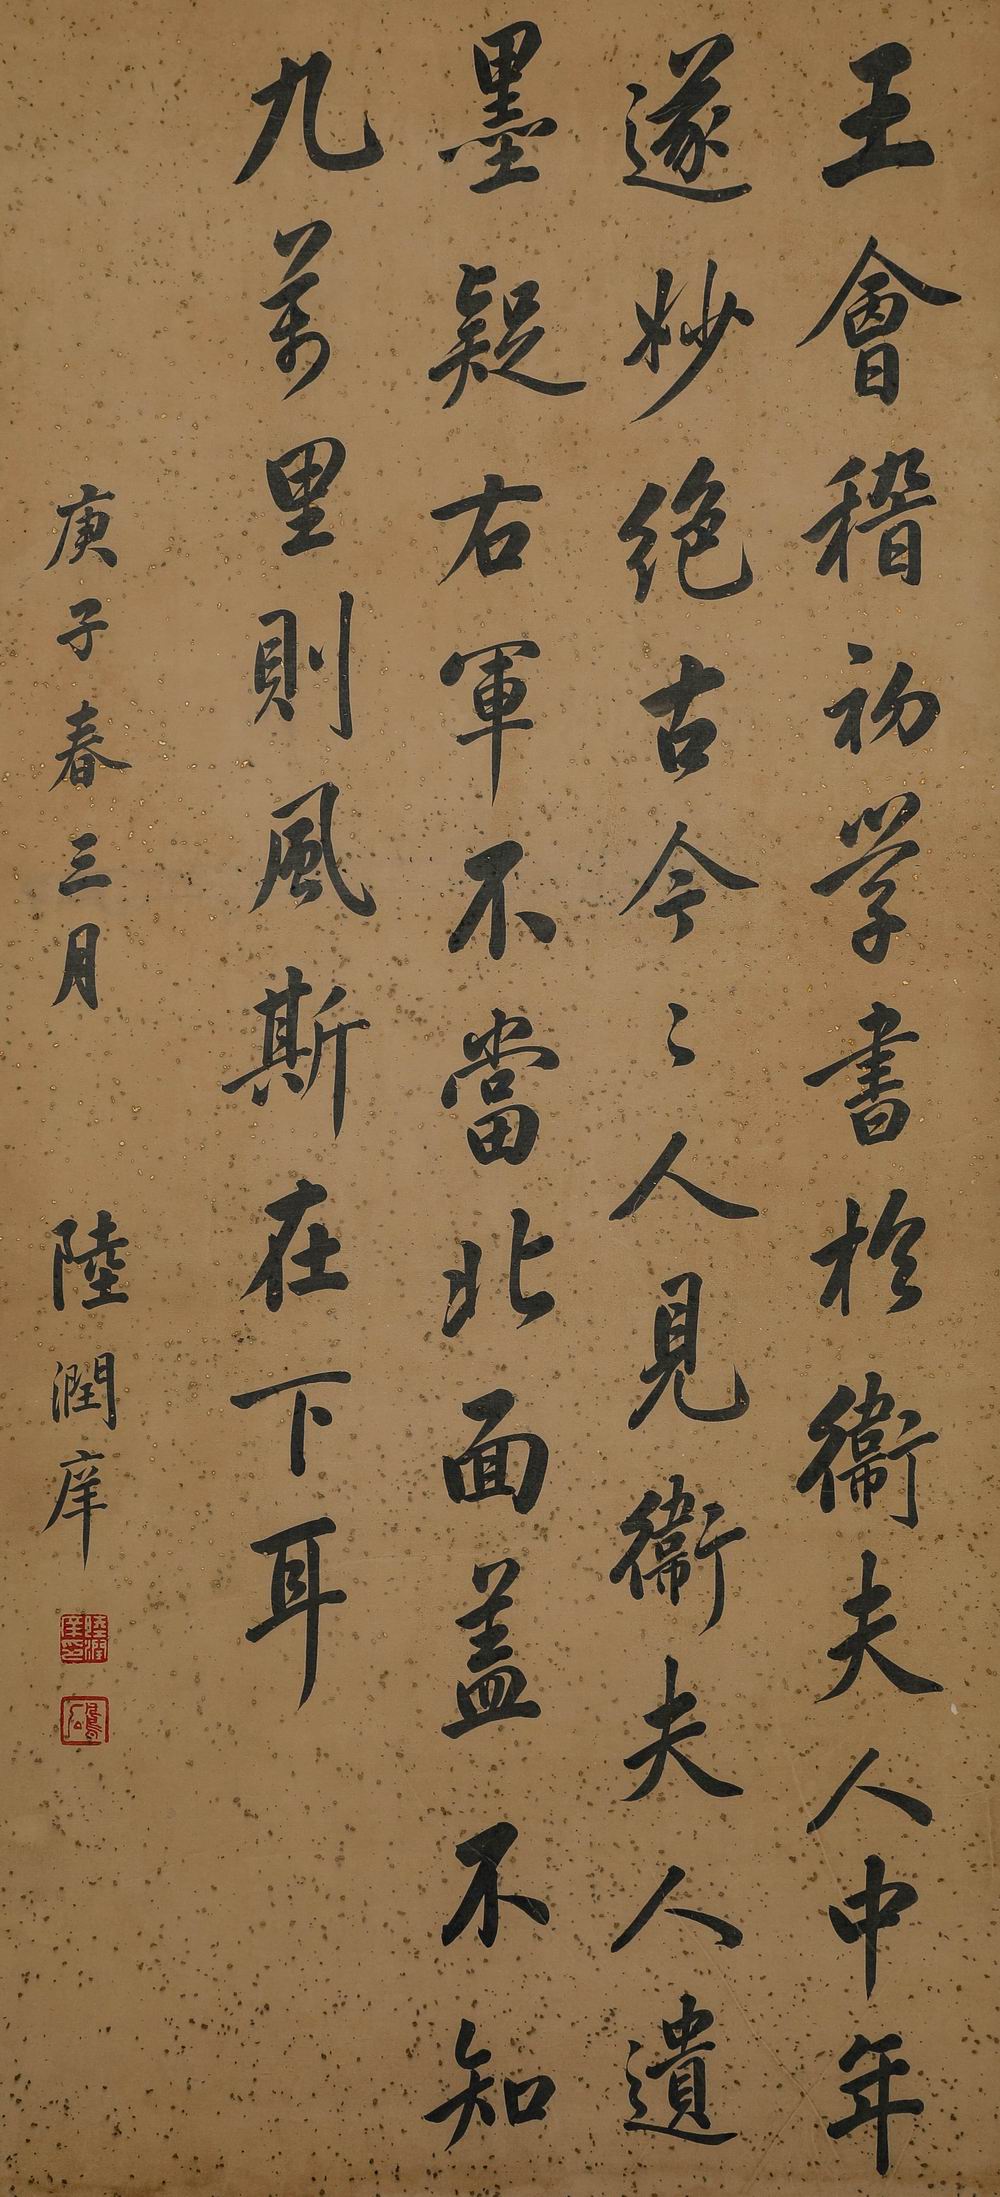 王會稽初学書於衞夫人中年
遂妙絶古今〻人見衞夫人遺
墨疑右軍不當北面盖不知
九萬里則風斯在下耳
庚子春三月 陸潤庠
陸潤庠印